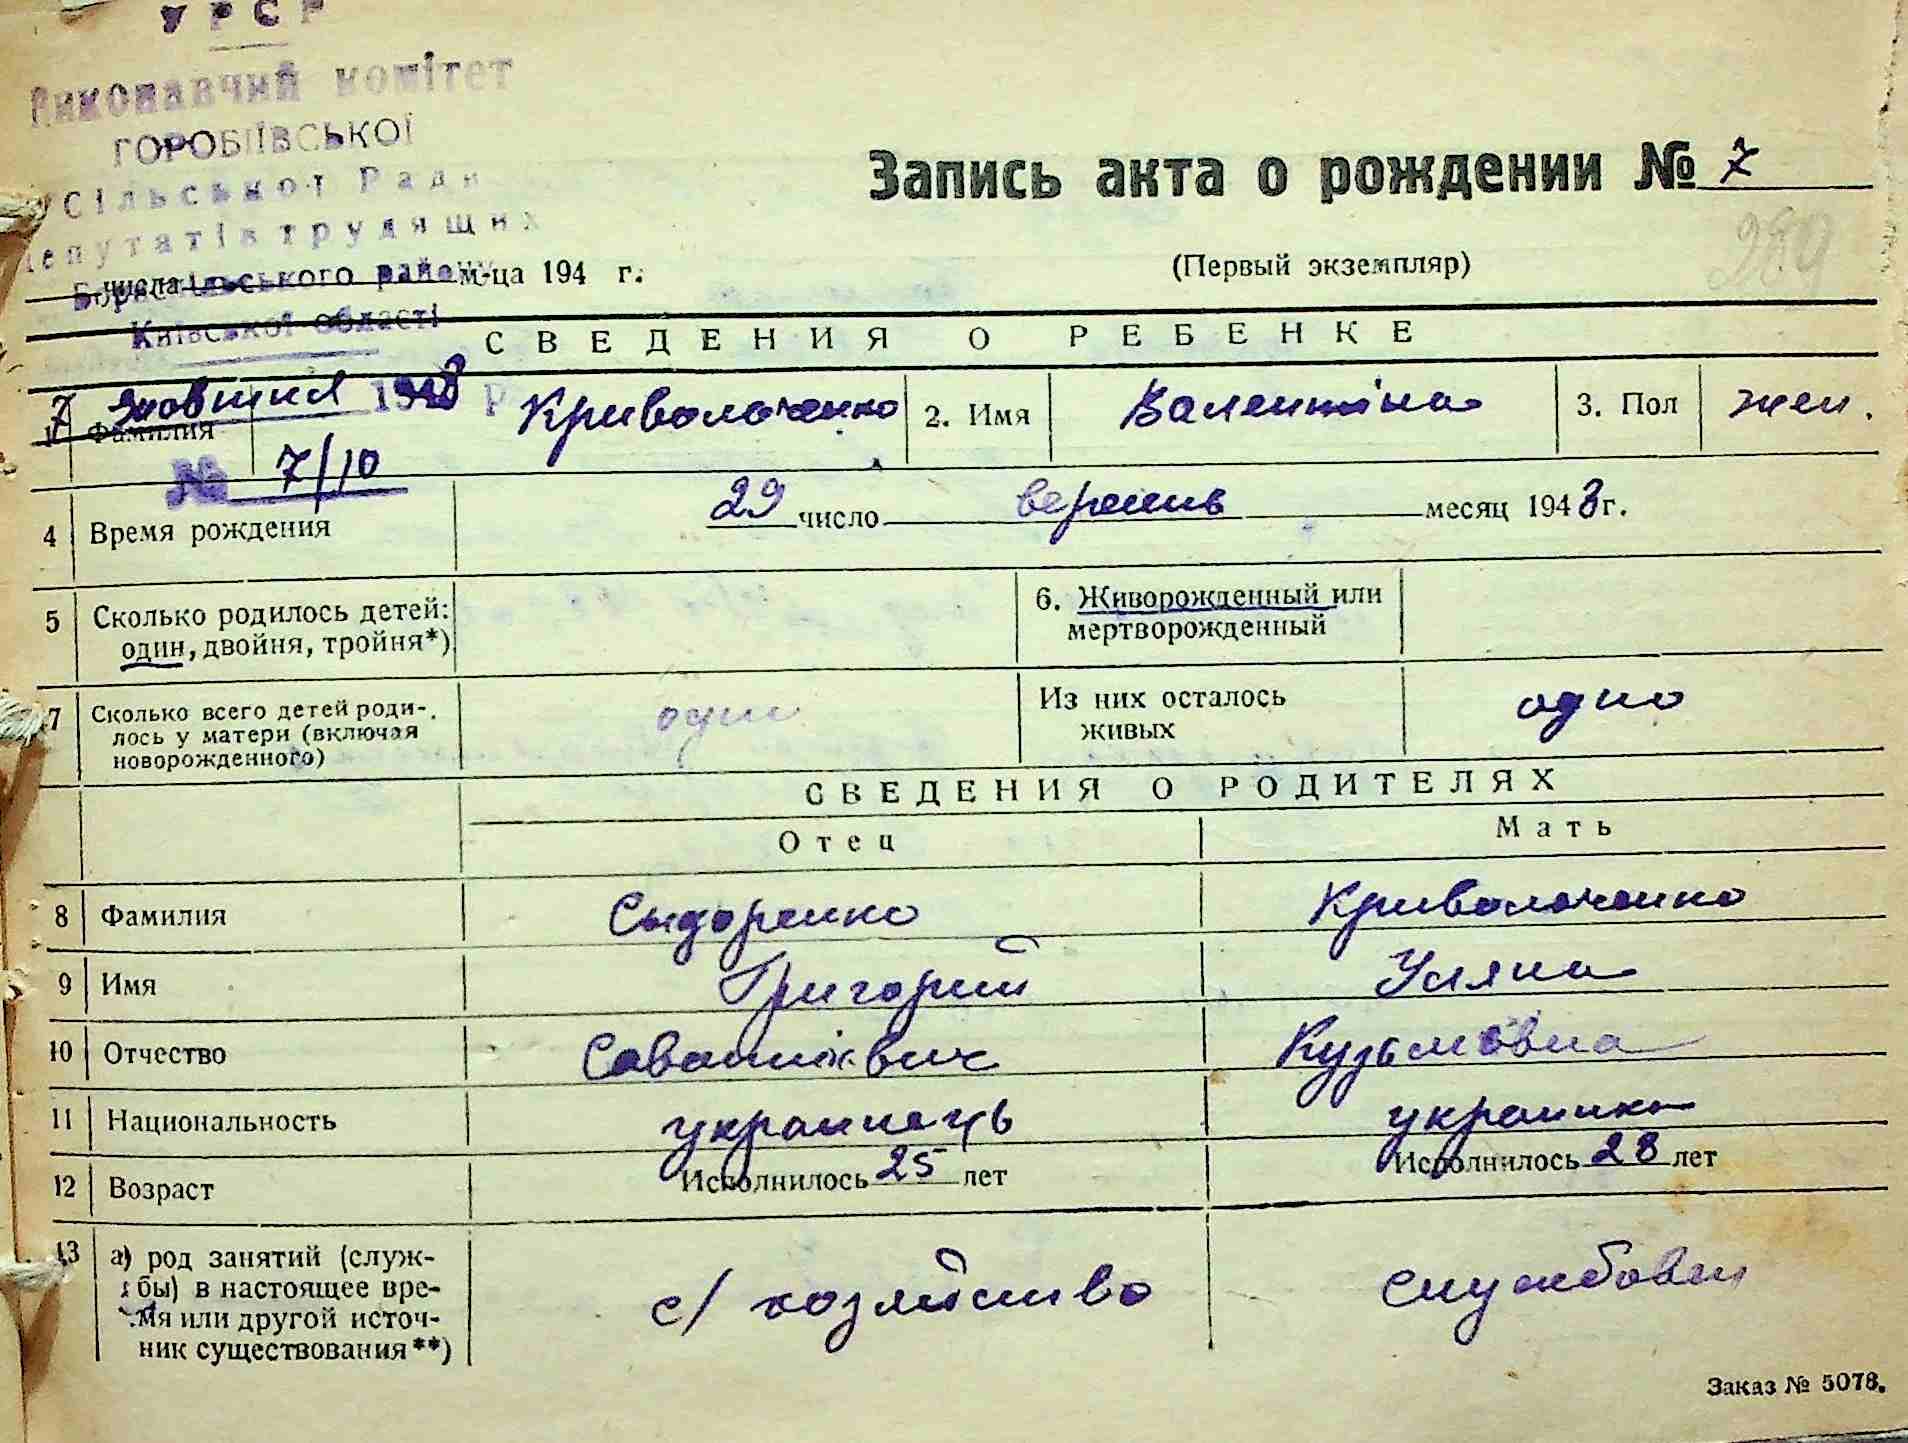 УРСР
Виконавчий комітет
ГОРОБІЇВСЬКОЇ
Сільської Ради
Депутатів трудящих
Бориспільського району
Київської області
числа м-ца 194 г.
7 жовтня 1943 Р
№ 7/10
Запись акта о рождении № 7
289
(Первый экземпляр)
СВЕДЕНИЯ О РЕБЕНКЕ
1 Фамилия Криволоченко 2. Имя Валентіна 3. Пол жен.
4 Время рождения 29 число вересень месяц 1943 г.
5 Сколько родилось детей: один, двойня, тройня*)
6. Живорожденный или мертворожденный
7 Сколько всего детей роди-
лось у матери (включая
новорожденного) один
Из них осталось
живых одно
СВЕДЕНИЯ О РОДИТЕЛЯХ
Отец Мать
8 Фамилия Сыдоренко Криволоченко
9 Имя Григорий Уляна
10 Отчество Кузьмовна
11 Национальность украинець украинка
12 Возраст Исполнилось 25 лет Исполнилось 28 лет
13 а) род занятий (служ-
бы) в настоящее вре-
мя или другой источ-
ник существования**) с/хозяйство службовец
Заказ № 5078.